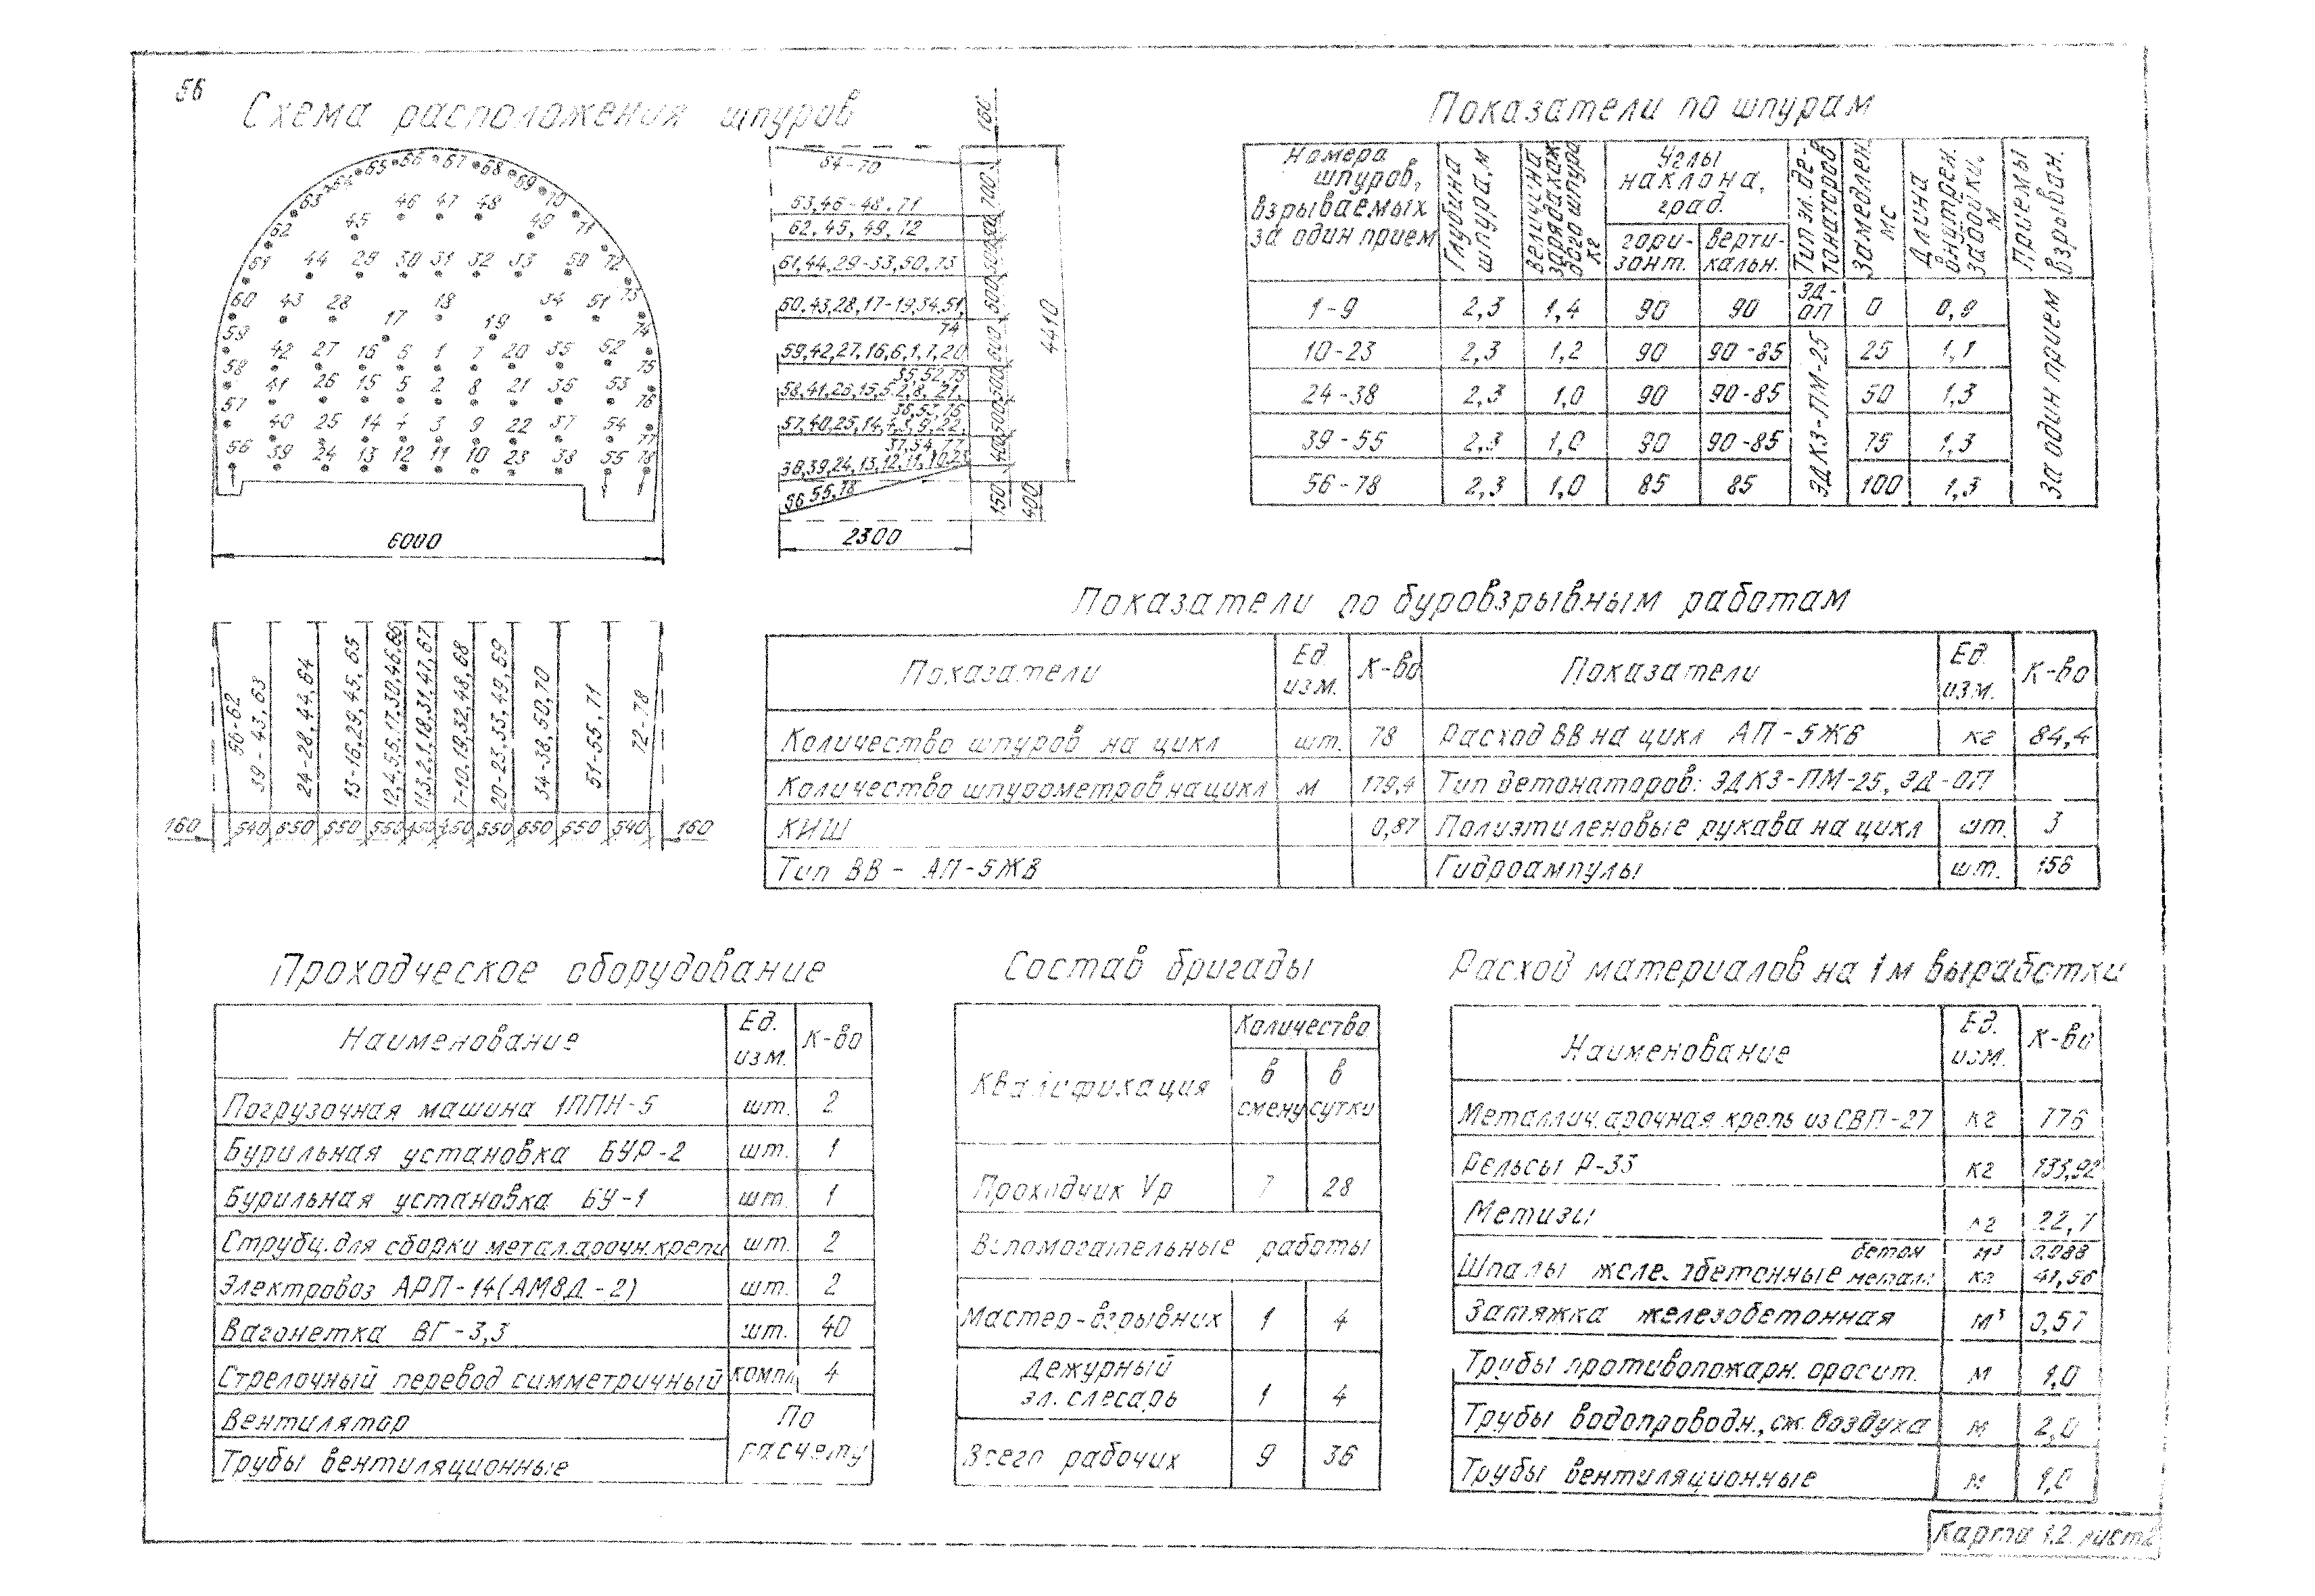 56
Схема расположения шпуров
65 66 67 68
64 69
63 70
46 47 48
45 49 71
62
61 44 29 30 31 32 33 50 72
60 43 28 18 34 51 73
17 19
59 74
42 27 16 6 1 7 20 35 52
58 75
41 26 15 5 2 8 21 36 53
57 76
40 25 14 4 3 9 22 37 54
56 77
39 24 13 12 11 10 23 38 55 78
6000
64-70
63,46-48,71
62,45,49,72
61,44,29-33,50,73
60,43,28,17-19,34,51,
74
59,42,27,16,6,1,7,20
35,52,75
58,41,26,15,5,2,8,21,
36,53,76
57,40,25,14,4,3,9,22,
37,54,77
38,39,24,13,12,11,10,23
56 55,78
2300
160
700
500
600
500
500
400
150
400
4410
56-62
39-43,63
24-28,44,64
13-16,29,45,65
12,4,5,6,17,30,46,66
11,3,2,1,18,31,47,67
7-10,19,32,48,68
20-23,33,49,69
34-38,50,70
51-55,71
72-78
160 540 650 550 550 450 450 550 650 550 540 160
Показатели по шпурам
Номера шпуров, взрываемых за один прием
Глубина шпура, м
Величина заряда каждого шпура кг
Углы наклона, град.
гори-зонт.
верти-кальн.
Тип эл. де-тонаторов
Замедлен. мс
Длина внутрен. забойки, м
Приемы взрыван.
1-9 2,3 1,4 90 90 ЭД-ОП 0 0,9
10-23 2,3 1,2 90 90-85 25 1,1
24-38 2,3 1,0 90 90-85 50 1,3
39-55 2,3 1,0 90 90-85 75 1,3
56-78 2,3 1,0 85 85 100 1,3
ЭДКЗ-ПМ-25
За один прием
Показатели по буровзрывным работам
Показатели Ед. изм. К-во Показатели Ед. изм. К-во
Количество шпуров на цикл шт. 78 Расход ВВ на цикл АП-5ЖВ кг 84,4
Количество шпурометров на цикл м 179,4 Тип детонаторов: ЭДКЗ-ПМ-25, ЭД-ОП
КИШ 0,87 Полиэтиленовые рукава на цикл шт. 3
Тип ВВ - АП-5ЖВ Гидроампулы шт. 156
Проходческое оборудование
Наименование Ед. изм. К-во
Погрузочная машина 1ППН-5 шт. 2
Бурильная установка БУР-2 шт. 1
Бурильная установка БУ-1 шт. 1
Струбц. для сборки метал. арочн. крепи шт. 2
Электровоз АРП-14(АМ8Д-2) шт. 2
Вагонетка ВГ-3,3 шт. 40
Стрелочный перевод симметричный компл 4
Вентилятор По
Трубы вентиляционные расчету
Состав бригады
Квалификация Количество
в смену в сутки
Проходчик Vр 7 28
Вспомогательные работы
Мастер-взрывник 1 4
Дежурный
эл. слесарь 1 4
Всего рабочих 9 36
Расход материалов на 1 м выработки
Наименование Ед. изм. К-во
Металлич. арочная крепь из СВП-27 кг 776
Рельсы Р-33 кг 133,92
Метизы кг 22,7
Шпалы железобетонные бетон м³ 0,088
металл кг 41,56
Затяжка железобетонная м³ 0,57
Трубы противопожарн. оросит. м 1,0
Трубы водопроводн., сж. воздуха м 2,0
Трубы вентиляционные м 1,0
Карта 1.2. лист 2